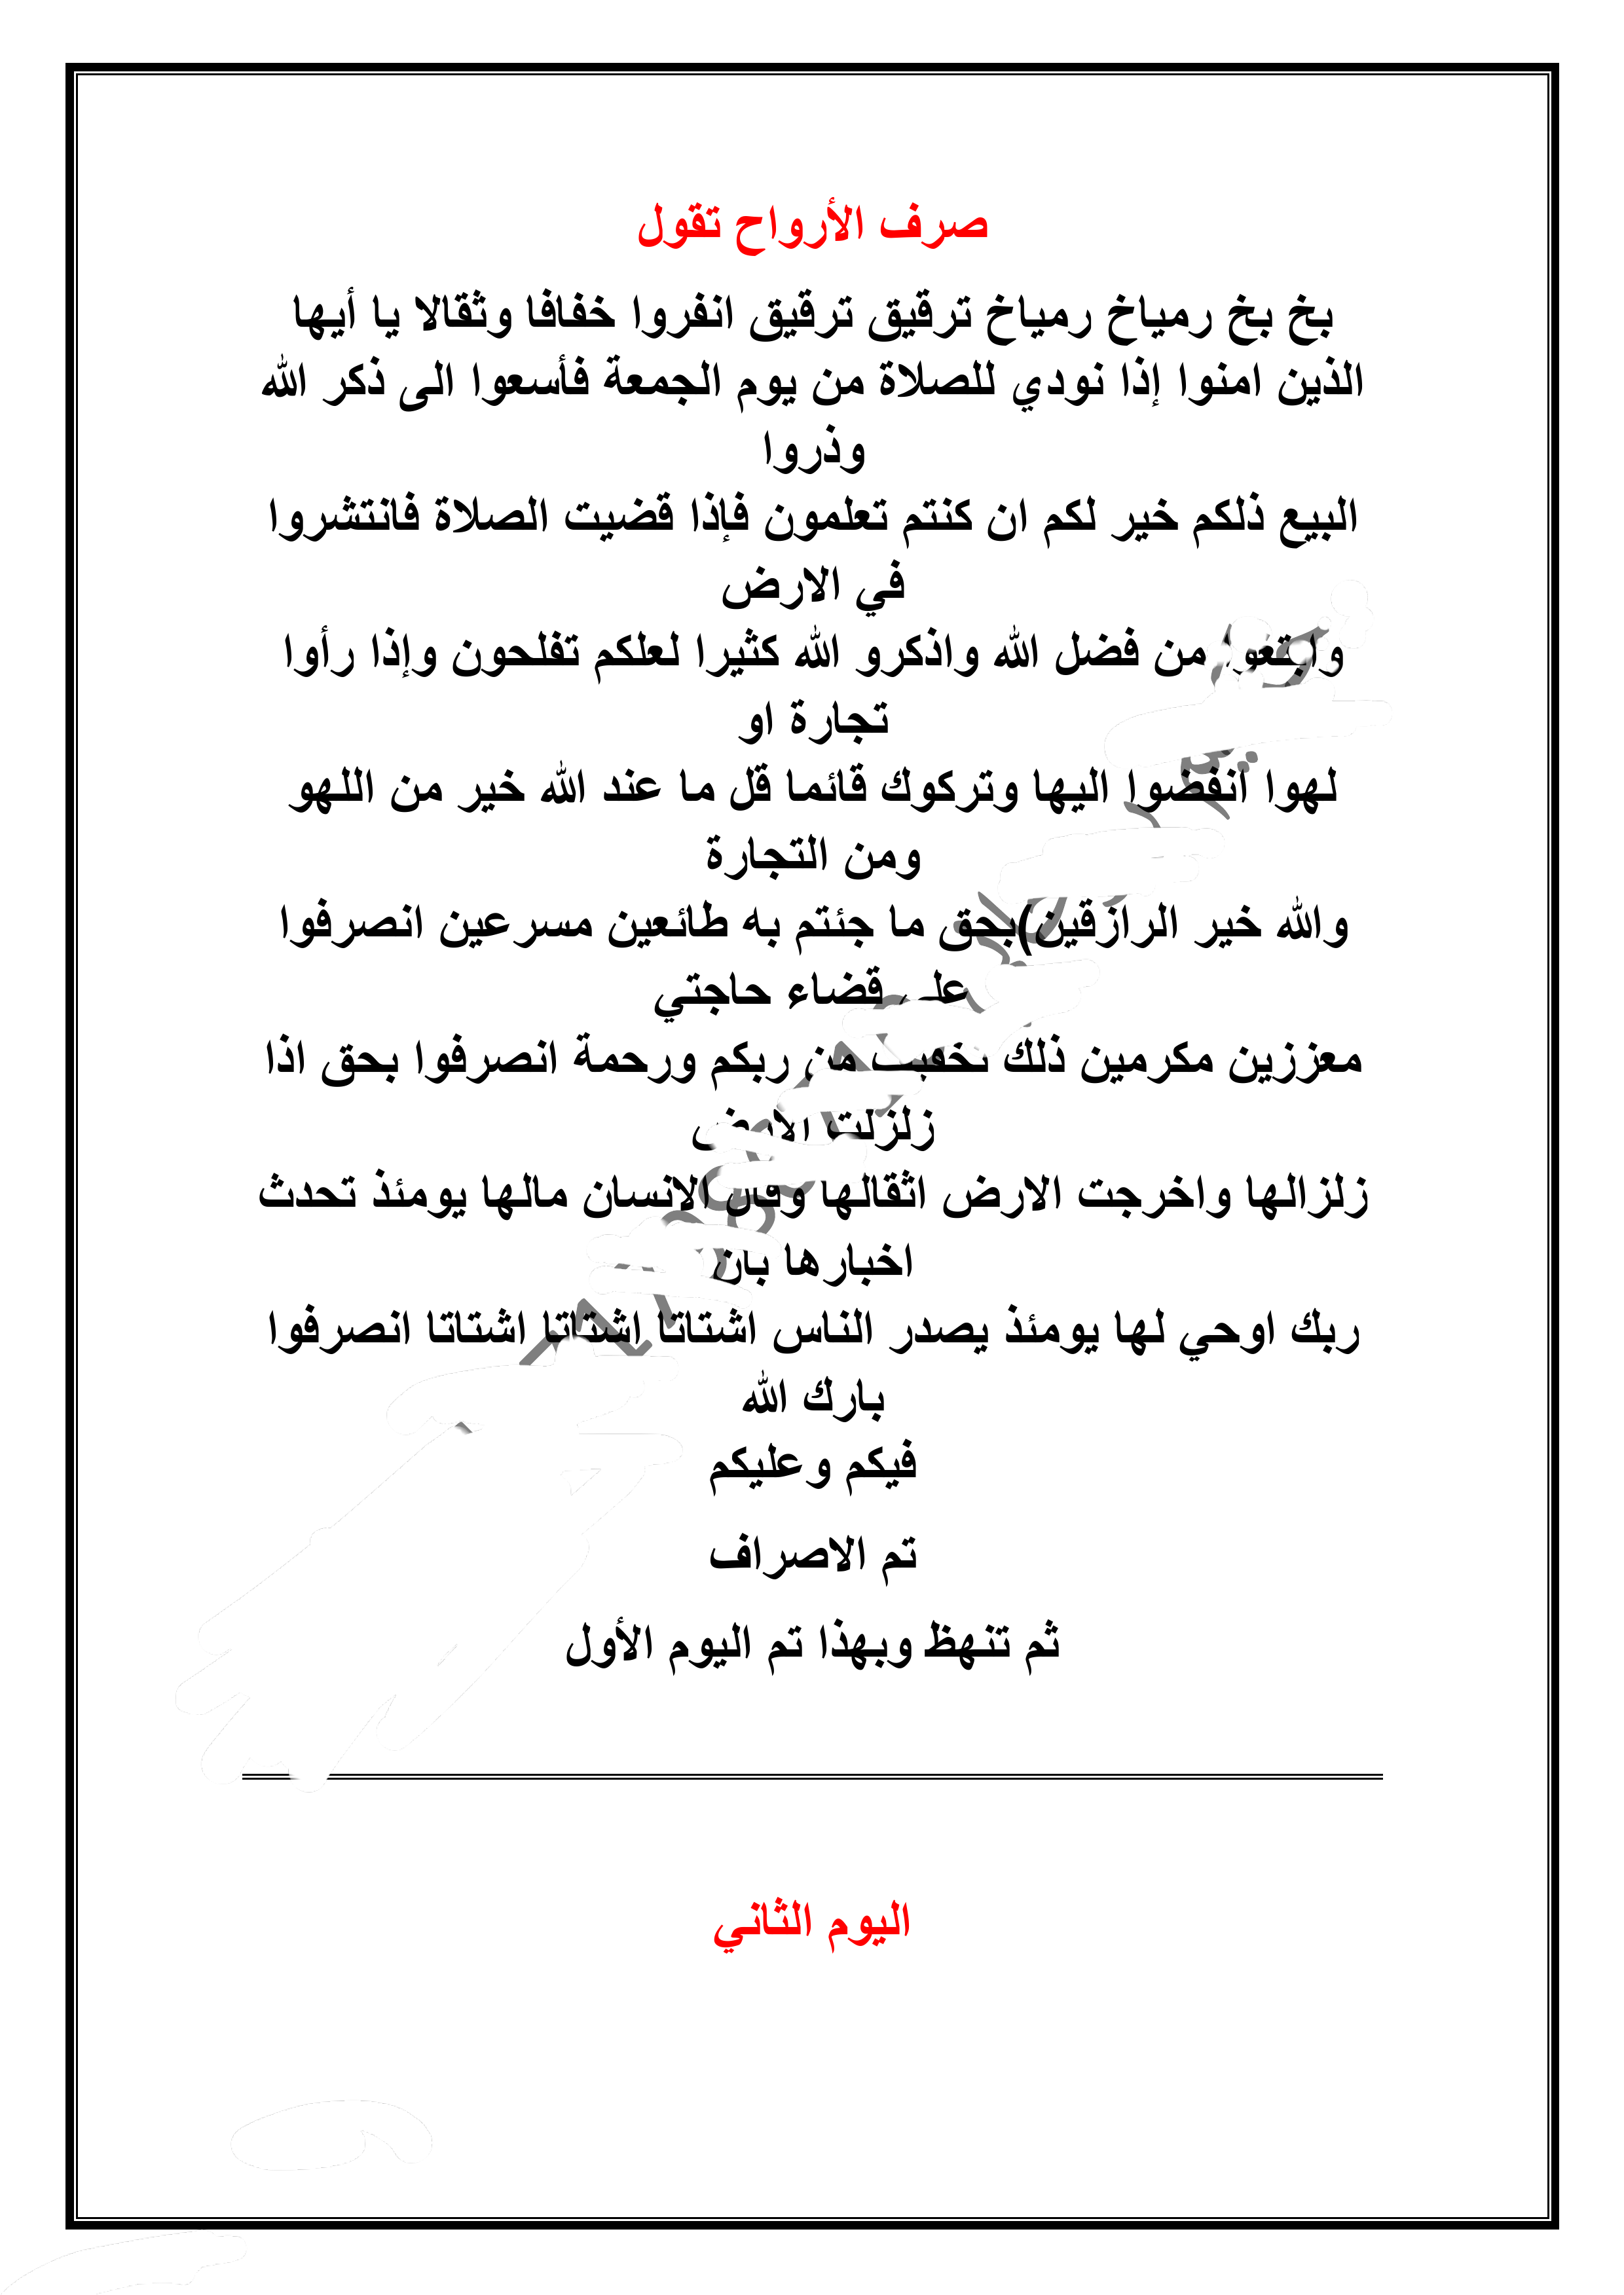 صرف الأرواح تقول
بخ بخ رمياخ رمياخ ترقيق ترقيق انفروا خفافا وثقالا يا أيها
الذين امنوا إذا نودي للصلاة من يوم الجمعة فأسعوا الى ذكر الله
وذروا
البيع ذلكم خير لكم ان كنتم تعلمون فإذا قضيت الصلاة فانتشروا
في الارض
وابتغوا من فضل الله واذكرو الله كثيرا لعلكم تفلحون وإذا رأوا
تجارة او
لهوا انفضوا اليها وتركوك قائما قل ما عند الله خير من اللهو
ومن التجارة
والله خير الرازقين)بحق ما جئتم به طائعين مسرعين انصرفوا
على قضاء حاجتي
معززين مكرمين ذلك تخفيف من ربكم ورحمة انصرفوا بحق اذا
زلزلت الارض
زلزالها واخرجت الارض اثقالها وقال الانسان مالها يومئذ تحدث
اخبارها بان
ربك اوحي لها يومئذ يصدر الناس اشتاتا اشتاتا اشتاتا انصرفوا
بارك الله
فيكم وعليكم
تم الاصراف
ثم تنهظ وبهذا تم اليوم الأول
اليوم الثاني